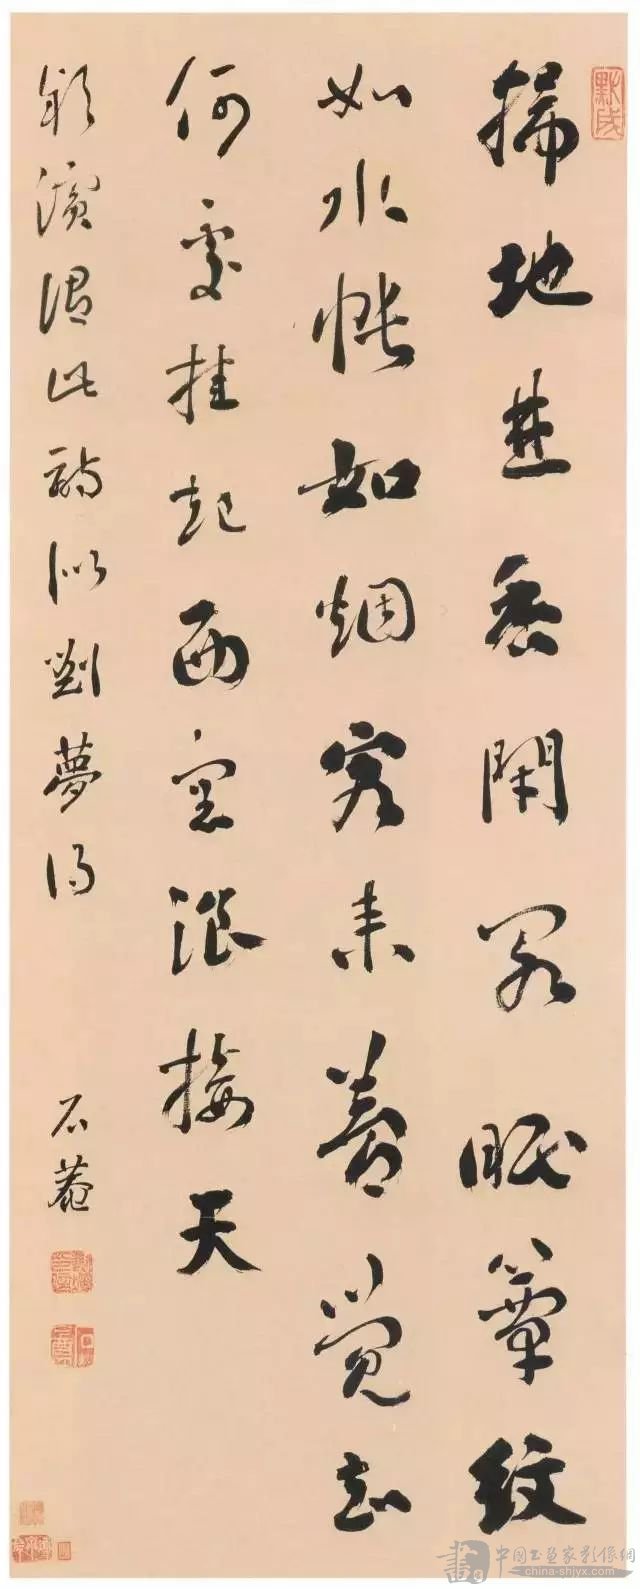 掃地焚香閉閣眠簟紋
如水帳如烟客來夢覺知
何處挂起西窗浪接天
潁濱謂此詩似劉夢得
石菴
默成
中國书画家影像網
china-shjyx.com